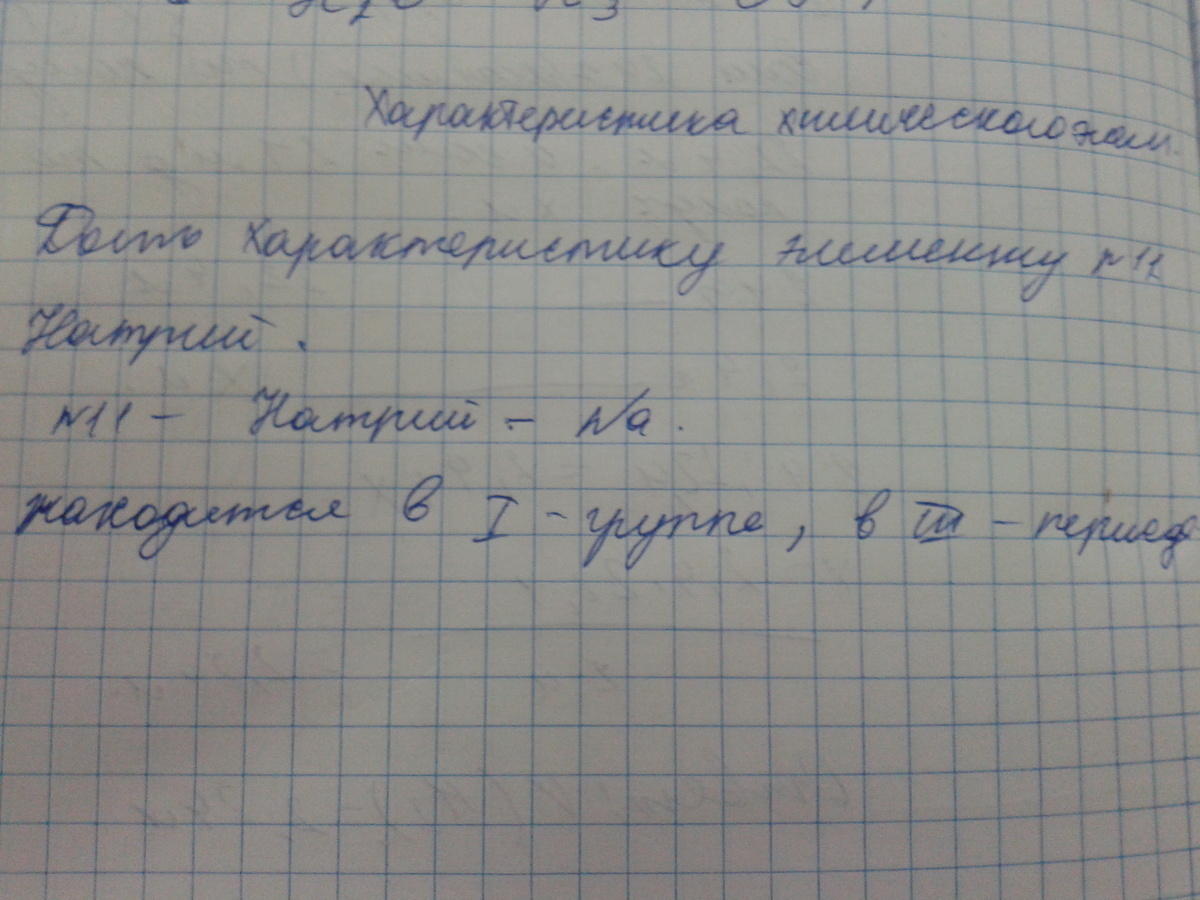 Характеристика химического элем.
Дать характеристику элементу №11
Натрий.
№11 - Натрий - Na.
находится в I - группе, в III - период